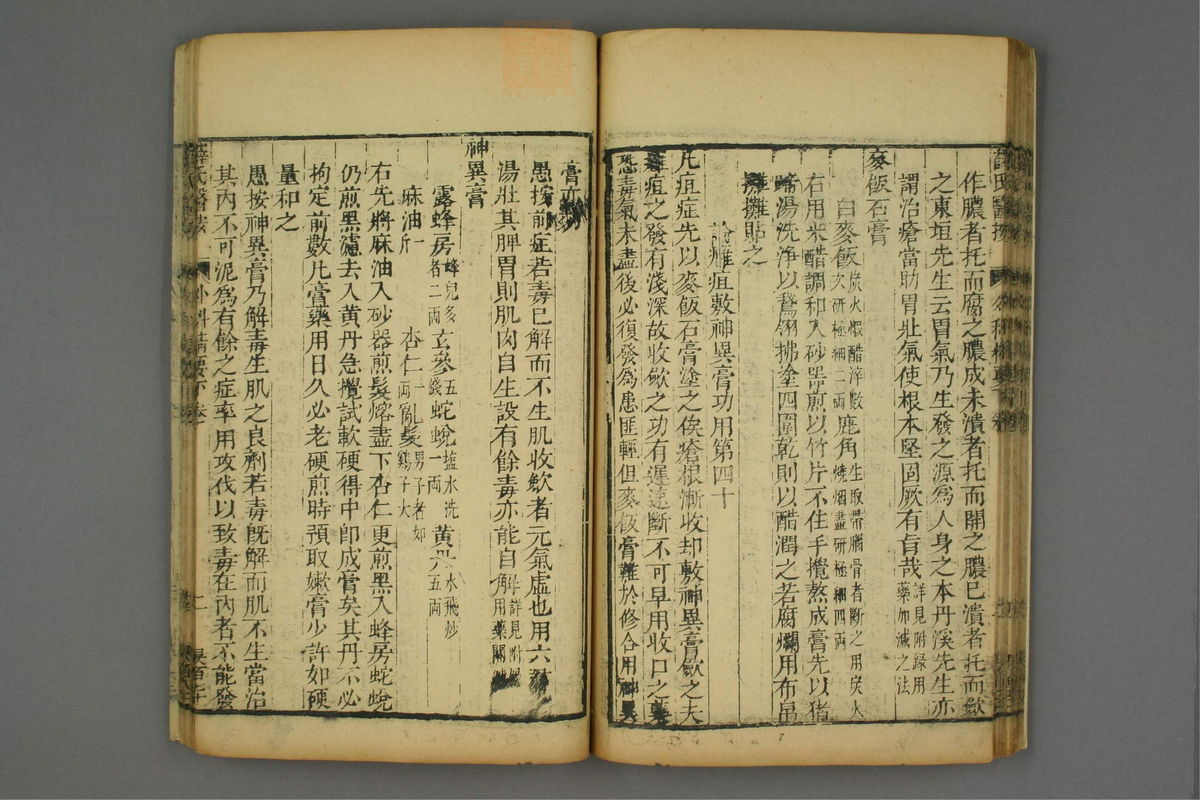 作膿者托而腐之膿成未潰者托而開之膿已潰者托而歛
之東垣先生云胃氣乃生發之源為人身之本丹溪先生亦
謂治瘡當助胃壯氣使根本堅固厥有旨哉詳見附録用藥加减之法
麥飯石膏
白麥飯炭火煅醋淬數次研極細二兩鹿角生取帶腦骨者斷之用炭火燒烟盡研極細四兩
右用米醋調和入砂器煎以竹片不住手攪熬成膏先以猪
蹄湯洗浄以鵞翎拂塗四圍乾則以醋潤之若腐爛用布帛
攤貼之
論癰疽敷神異膏功用第四十
凡疽症先以麥飯石膏塗之俟瘡根漸收却敷神異膏歛之夫
疽之發有淺深故收歛之功有遲速斷不可早用收口之藥
恐毒氣未盡後必復發為患匪輕但麥飯膏難於修合用神異
膏亦
愚按前症若毒已解而不生肌收歛者元氣虛也用六
湯壯其脾胃則肌肉自生設有餘毒亦能自解詳見附用藥
神異膏
露蜂房蜂兒多者二兩玄參五錢蛇蛻塩水洗一兩黄丹水飛炒五兩
麻油一斤 杏仁一兩亂髮男子者如雞子大
右先將麻油入砂器煎髮熔盡下杏仁更煎黑入蜂房蛇蛻
仍煎黑濾去入黄丹急攪試軟硬得中卽成膏矣其丹不必
拘定前數凡膏藥用日久必老硬煎時預取嫰膏少許如硬
量和之
愚按神異膏乃解毒生肌之良劑若毒旣解而肌不生當治
其内不可泥為有餘之症率用攻伐以致毒在内者不能發